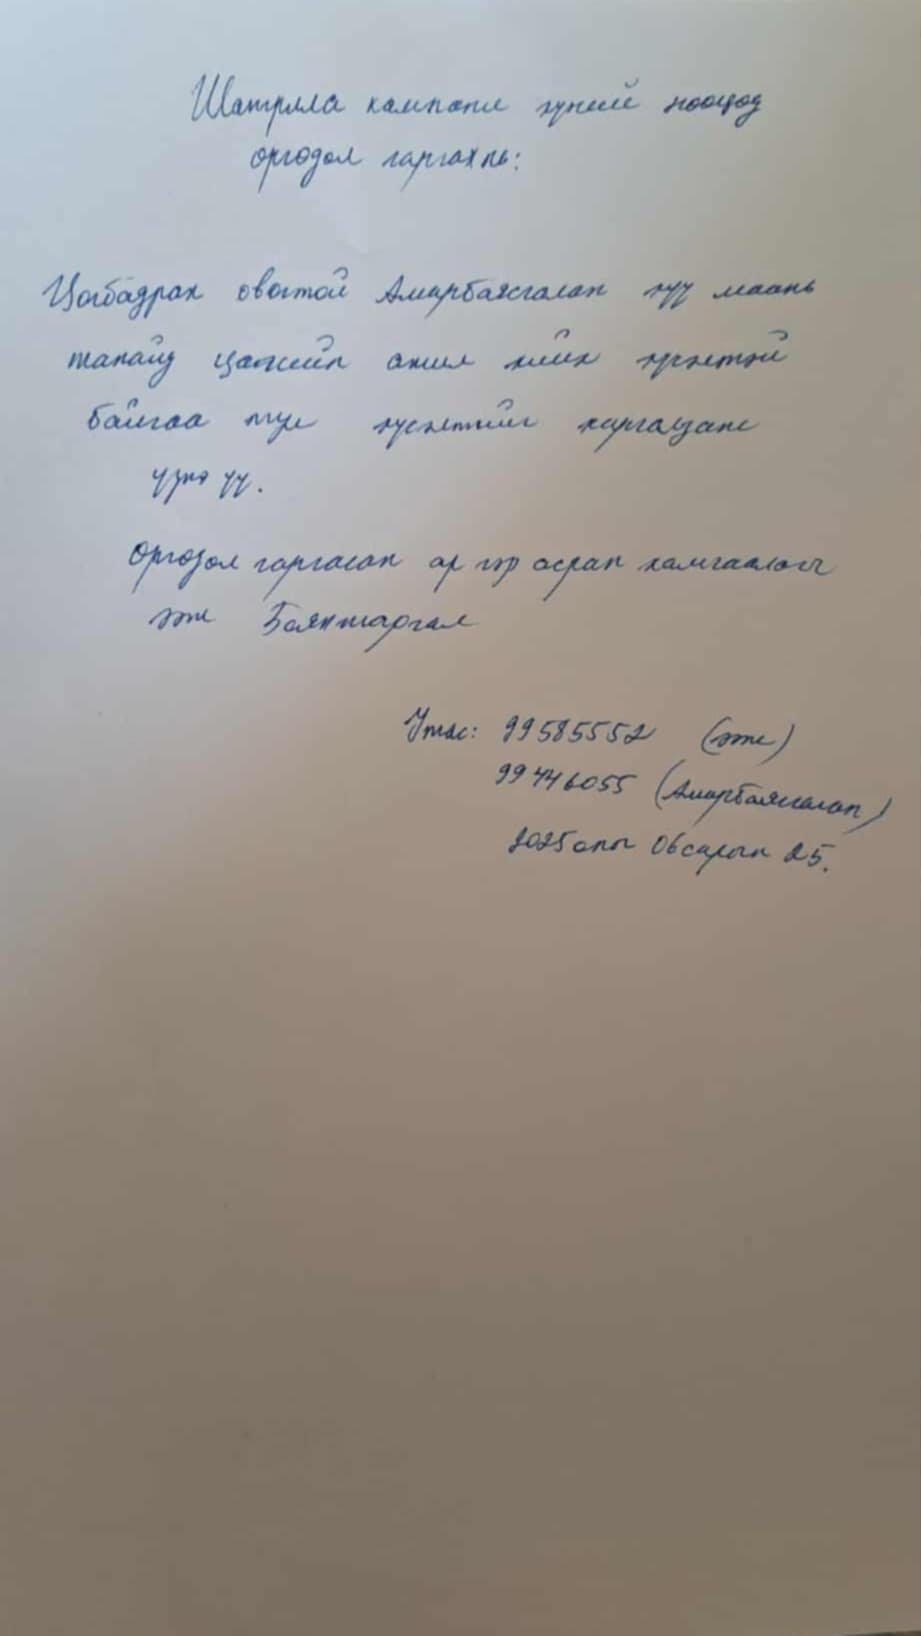 Шатрлла компани хүний нөөцөд
өргөдөл гаргах нь:
Цогбадрах овогтой Амарбаясгалан хүү маань
танайд цагийн ажил хийх хүсэлтэй
байгаа тул хүсэлтийг харгалзан
үзнэ үү.
Өргөдөл гаргасан ар гэр асран хамгаалагч
ээж Баянжаргал
Утас: 99585552 (ээж)
99446055 (Амарбаясгалан)
2025 оны 06 сарын 25.